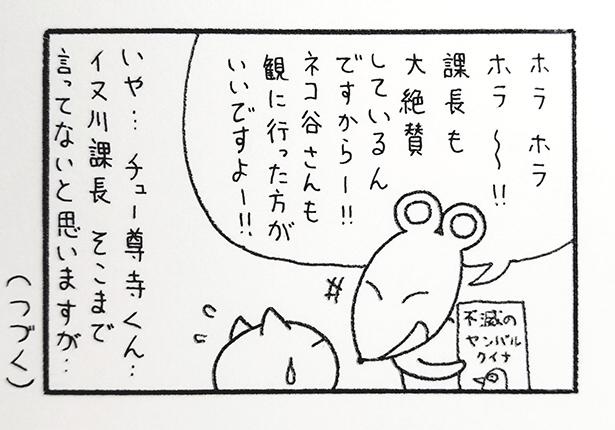 ホラ ホラ
ホラ 〜!!
課長も
大絶賛
しているん
ですからー!!
ネコ谷さんも
観に行った方が
いいですよー!!
不滅の
ヤンバル
クイナ
いや… チュー尊寺くん…
イヌ川課長 そこまで
言ってないと思いますが…
(つづく)